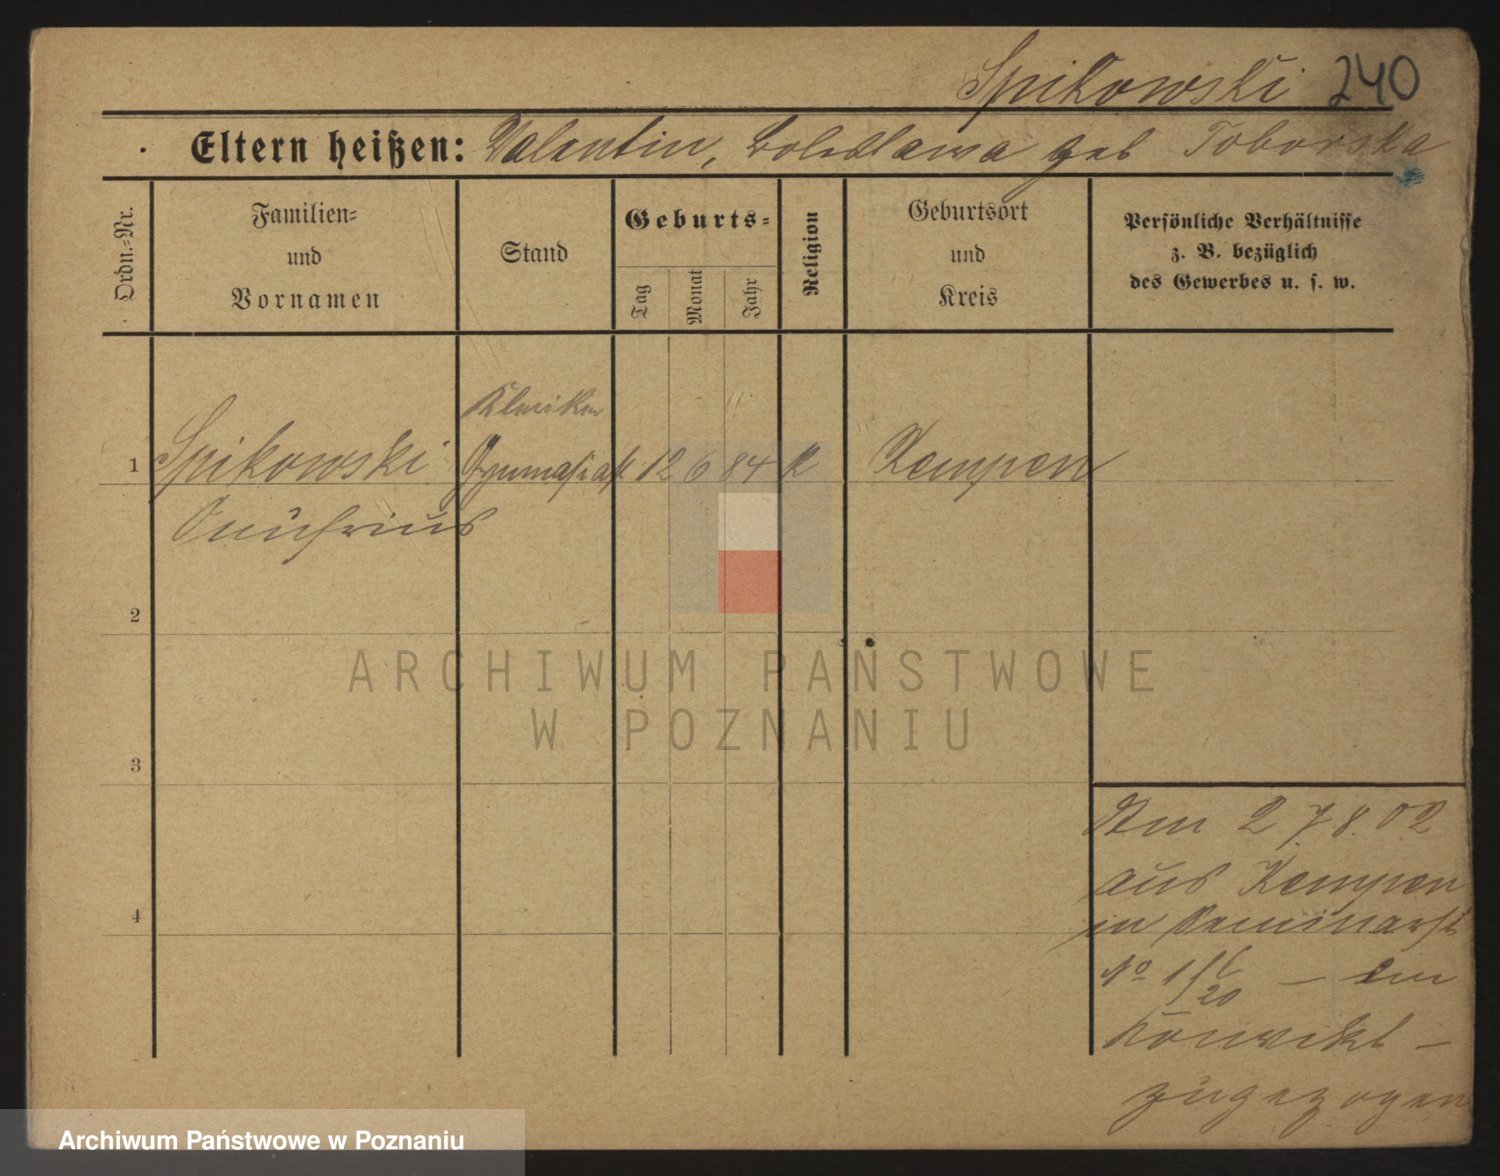 Spikowski 240
Eltern heißen: Valentin, Boleslawa geb Toborska
Ordn.=Nr.
Familien=
und
Vornamen
Stand
Geburts=
Tag
Monat
Jahr
Religion
Geburtsort
und
Kreis
Persönliche Verhältnisse
z. B. bezüglich
des Gewerbes u. s. w.
Kleriker
1 Spikowski Gymnasiast 12 6 84 K Kempen
Onufrius
2
3
4
Am 27 8. 02
aus Kempen
in Seminarst
No
Konvikt —
zugezogen
ARCHIWUM PAŃSTWOWE
W POZNANIU
Archiwum Państwowe w Poznaniu